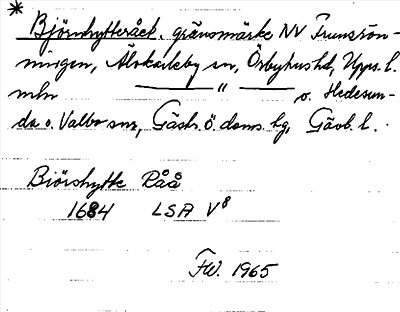 * Björnhytteråek. gränsmärke NV Frunsrön-
ningen, Älvkarleby sn, Örbyhus hd, Upps. l.
mln ——— " ——— o. Hedesun-
da o. Valbo snr, Gästr. ö. doms. hg, Gävb. l.
Biörshytte Råå
1684 LSA V8
FW. 1965